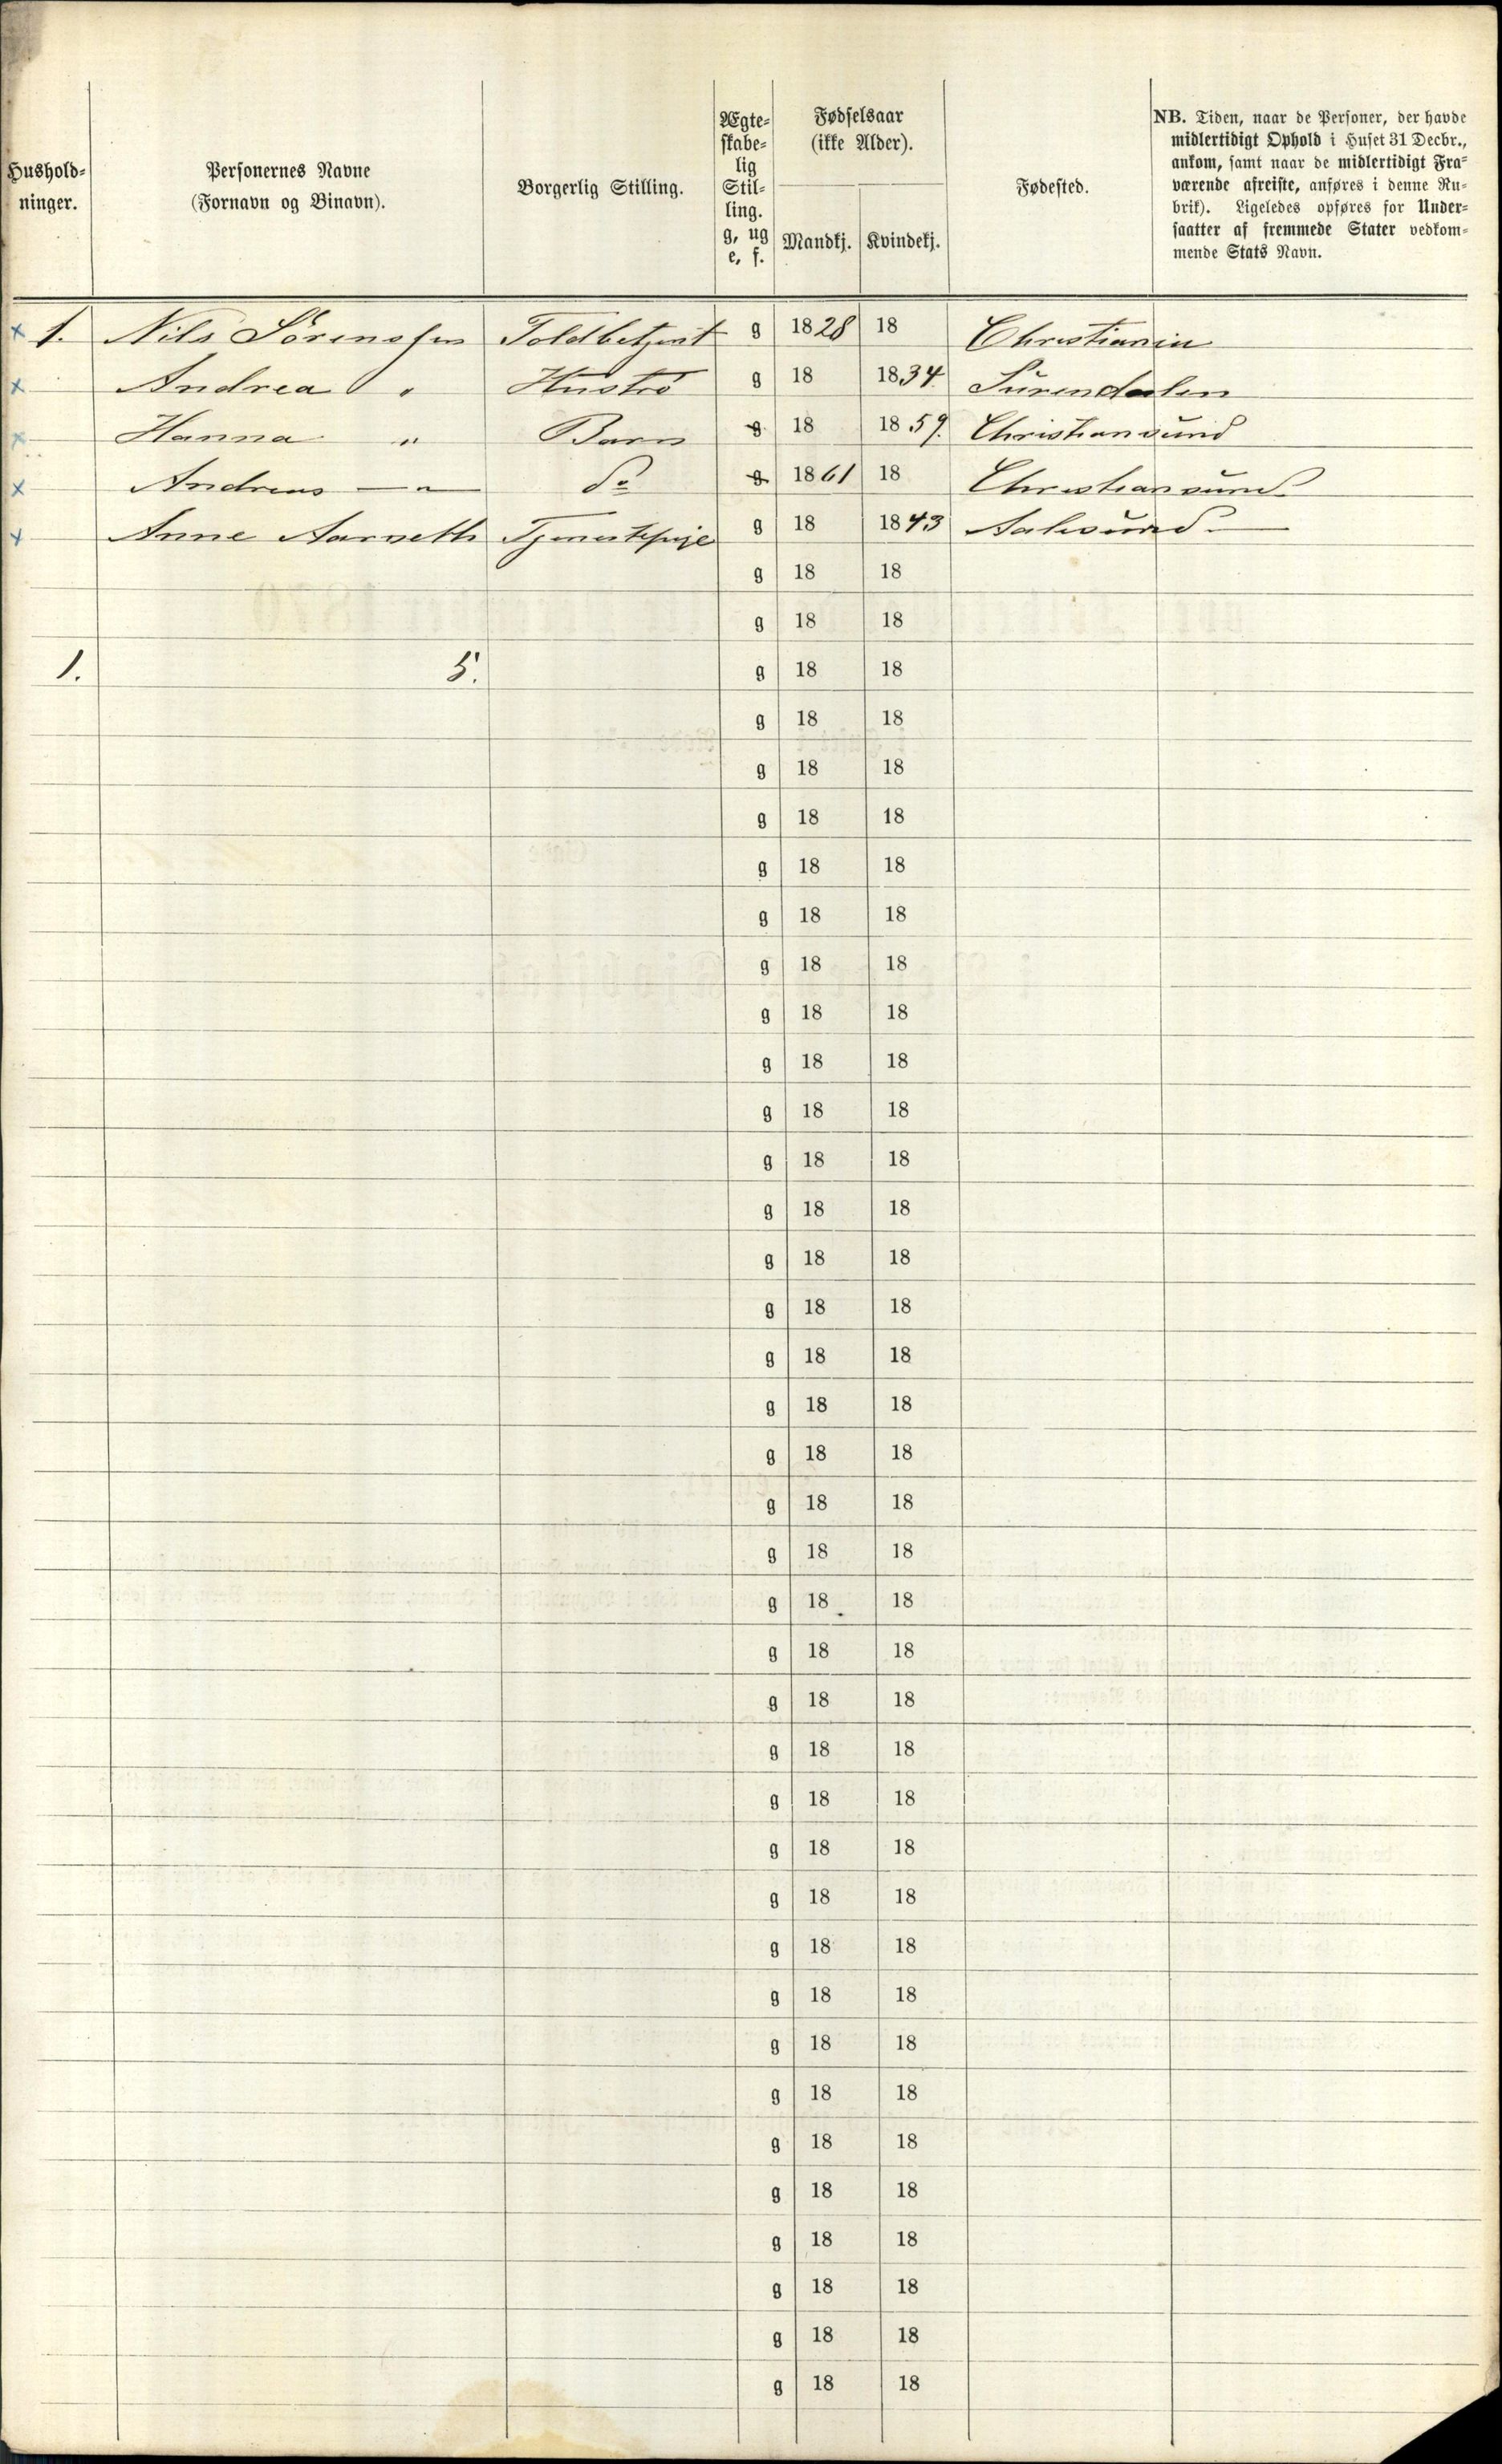 Hushold-
ninger.
Personernes Navne
(Fornavn og Binavn).
Borgerlig Stilling.
Ægte-
skabe-
lig
Stil-
ling.
g, ug
e, f.
Fødselsaar
(ikke Alder).
Mandkj. Kvindekj.
Fødested.
NB. Tiden, naar de Personer, der havde
midlertidigt Ophold i Huset 31 Decbr.,
ankom, samt naar de midlertidigt Fra-
værende afreiste, anføres i denne Ru-
brik). Ligeledes opføres for Under-
saatter af fremmede Stater vedkom-
mende Stats Navn.
x 1. Nils Sörenssen Toldbetjent g 1828 18 Christiania
x Andrea " Huströ g 18 1834. Sürendalen
x Hanna " Barn g 18 1859. Christiansund
x Andreas — " — do g 1861 18 Christiansund
x Anne Aarseth Tjenestepige g 18 1843 Aalesünd —
g 18 18
g 18 18
1. 5. g 18 18
g 18 18
g 18 18
g 18 18
g 18 18
g 18 18
g 18 18
g 18 18
g 18 18
g 18 18
g 18 18
g 18 18
g 18 18
g 18 18
g 18 18
g 18 18
g 18 18
g 18 18
g 18 18
g 18 18
g 18 18
g 18 18
g 18 18
g 18 18
g 18 18
g 18 18
g 18 18
g 18 18
g 18 18
g 18 18
g 18 18
g 18 18
g 18 18
g 18 18
g 18 18
g 18 18